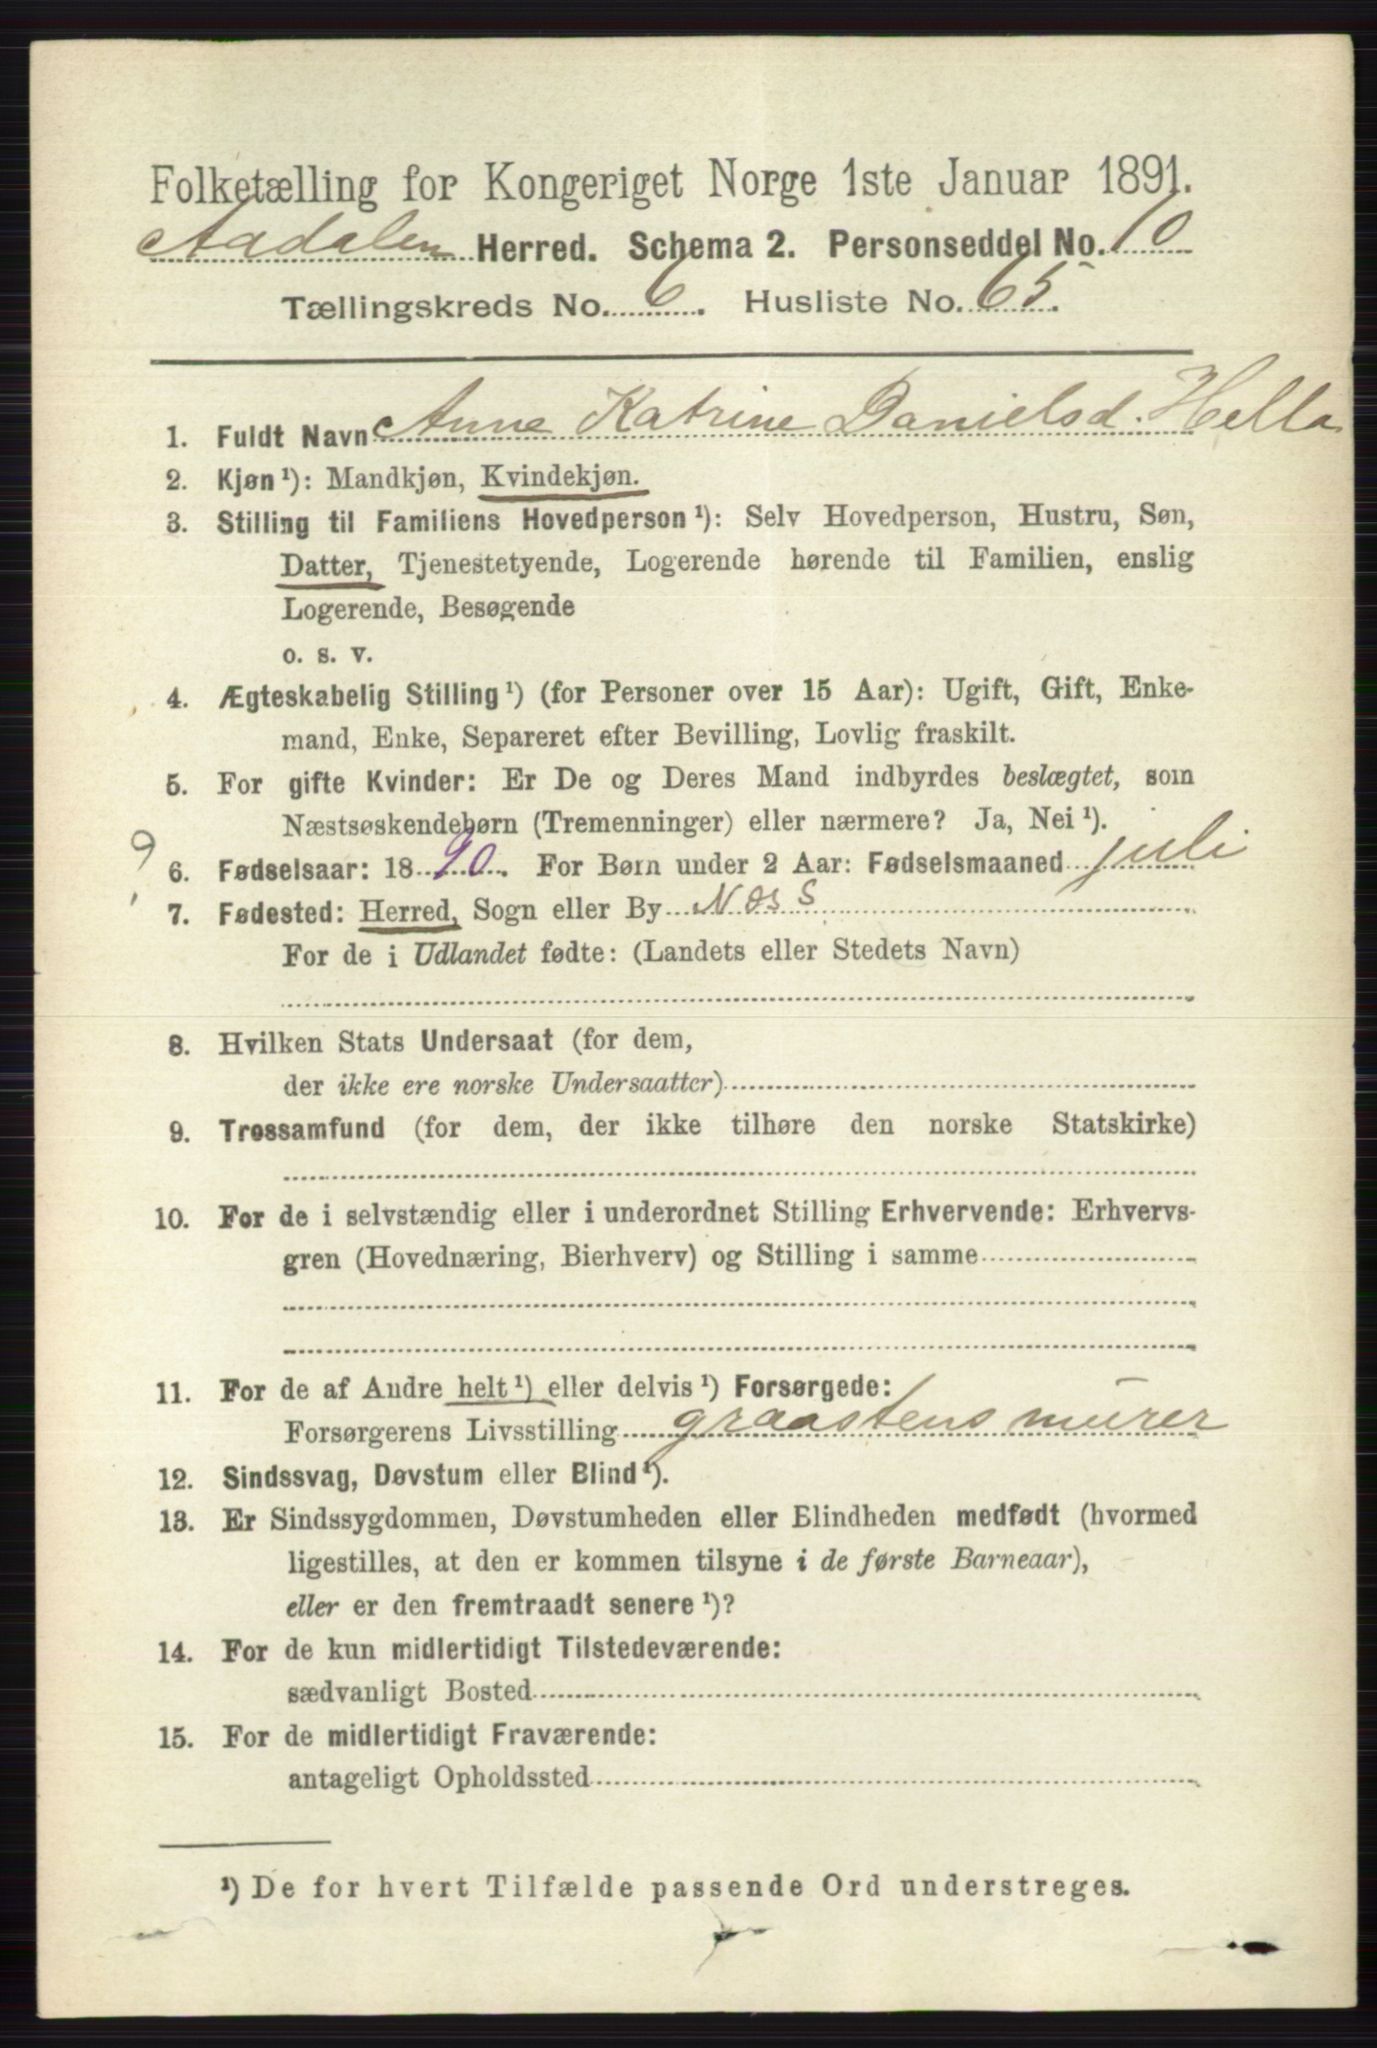 Folketælling for Kongeriget Norge 1ste Januar 1891.
Aadalen Herred. Schema 2. Personseddel No. 10
Tællingskreds No. 6. Husliste No. 65.
1. Fuldt Navn Anne Katrine Danielsd. Hella
2. Kjøn¹): Mandkjøn, Kvindekjøn.
3. Stilling til Familiens Hovedperson¹): Selv Hovedperson, Hustru, Søn,
Datter, Tjenestetyende, Logerende hørende til Familien, enslig
Logerende, Besøgende
o. s. v.
4. Ægteskabelig Stilling¹) (for Personer over 15 Aar): Ugift, Gift, Enke-
mand, Enke, Separeret efter Bevilling, Lovlig fraskilt.
5. For gifte Kvinder: Er De og Deres Mand indbyrdes beslægtet, som
Næstsøskendebørn (Tremenninger) eller nærmere? Ja, Nei¹).
6. Fødselsaar: 1890. For Børn under 2 Aar: Fødselsmaaned juli
7. Fødested: Herred, Sogn eller By
For de i Udlandet fødte: (Landets eller Stedets Navn)
8. Hvilken Stats Undersaat (for dem,
der ikke ere norske Undersaatter)
9. Trossamfund (for dem, der ikke tilhøre den norske Statskirke)
10. For de i selvstændig eller i underordnet Stilling Erhvervende: Erhvervs-
gren (Hovednæring, Bierhverv) og Stilling i samme
11. For de af Andre helt¹) eller delvis¹) Forsørgede:
Forsørgerens Livsstilling graastens murer
12. Sindssvag, Døvstum eller Blind¹).
13. Er Sindssygdommen, Døvstumheden eller Blindheden medfødt (hvormed
ligestilles, at den er kommen tilsyne i de første Barneaar),
eller er den fremtraadt senere¹)?
14. For de kun midlertidigt Tilstedeværende:
sædvanligt Bosted
15. For de midlertidigt Fraværende:
antageligt Opholdssted
¹) De for hvert Tilfælde passende Ord understreges.